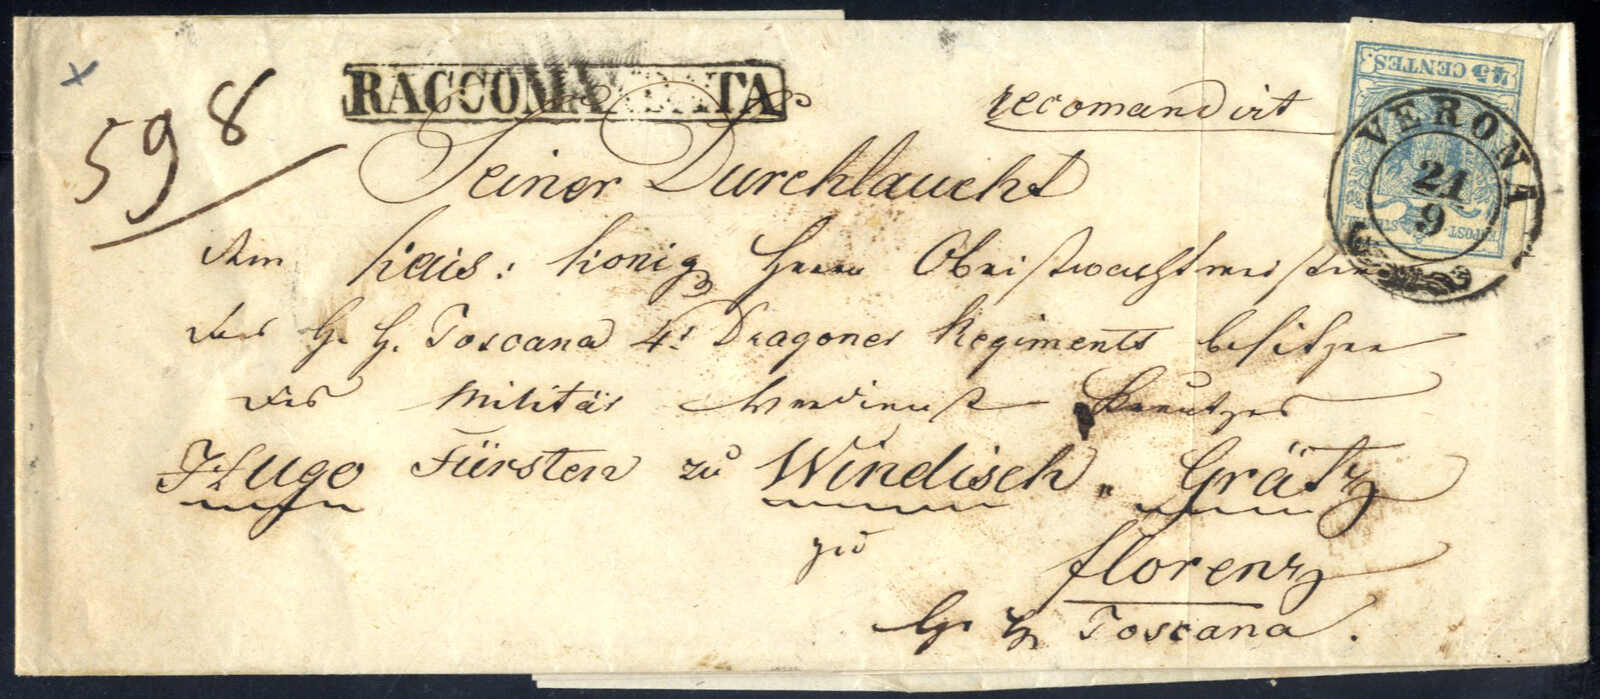 598
RACCOMANDATA
recomandirt
45 CENTES.
VERONA
21
9
Seiner Durchlaucht
dem kais: könig: Herrn Obristwachtmeister
des G. H. Toscana 4t Dragoner Regiments besitzer
des Militär Verdienst Kreutzes
Hugo Fürsten zu Windisch „ Grätz
zu
Florenz
G. H. Toscana.